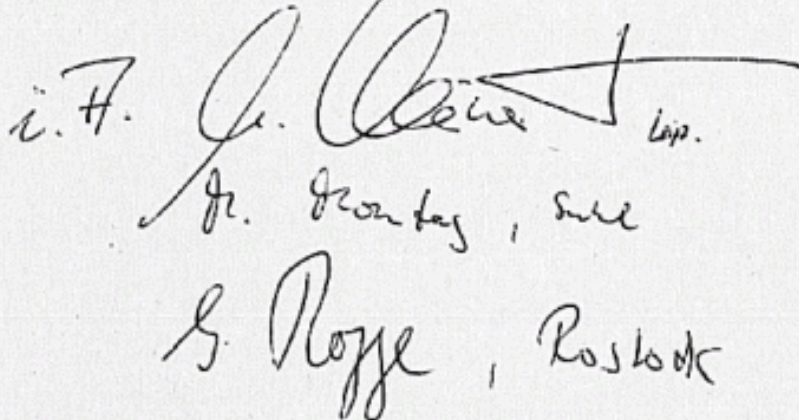 i. A. G. Lpz.
M. Montag, Suhl
G. Rogge, Rostock